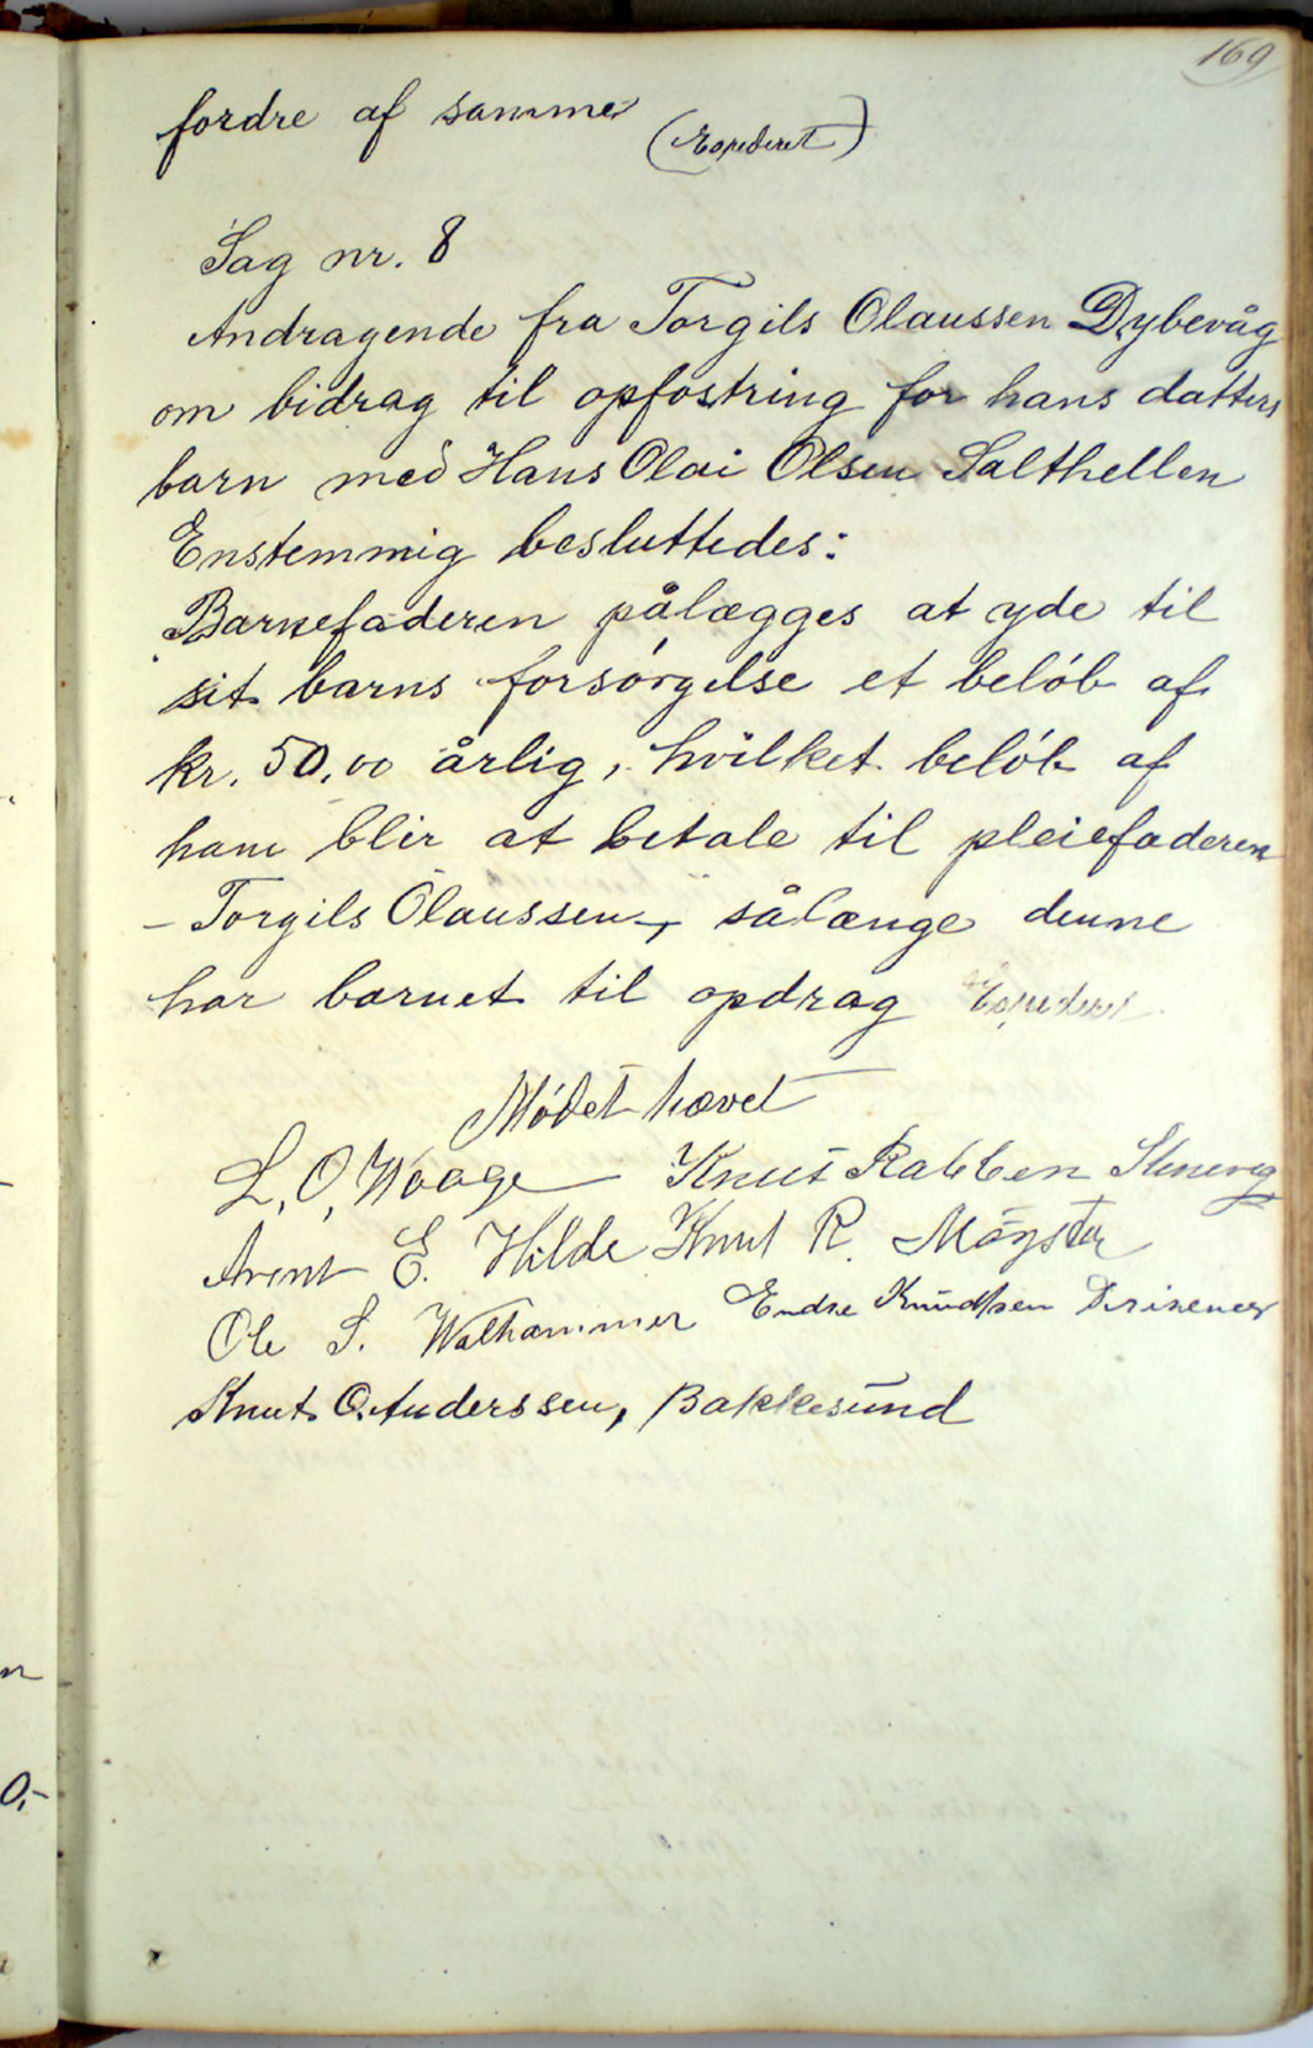 169
fordre af samme (Expederet)
Sag nr. 8
Andragende fra Torgils Olaussen Dybevåg
om bidrag til opfostring for hans datters
barn med Hans Olai Olsen Salthellen
Enstemmig besluttedes:
Barnefaderen pålægges at yde til
sit barns forsørgelse et beløb af
kr. 50,00 årlig, hvilket beløb af
ham blir at betale til pleiefaderen
- Torgils Olaussen -, sålænge denne
har barnet til opdrag Expederet
Mødet hævet
L. O. Waage Knut Rabben Stenevig
Arent E. Hilde Knut R. Møgster
Ole S. Walhammer Endre Knudtsen
Knut O. Anderssen, Bakkesund
n
0,-